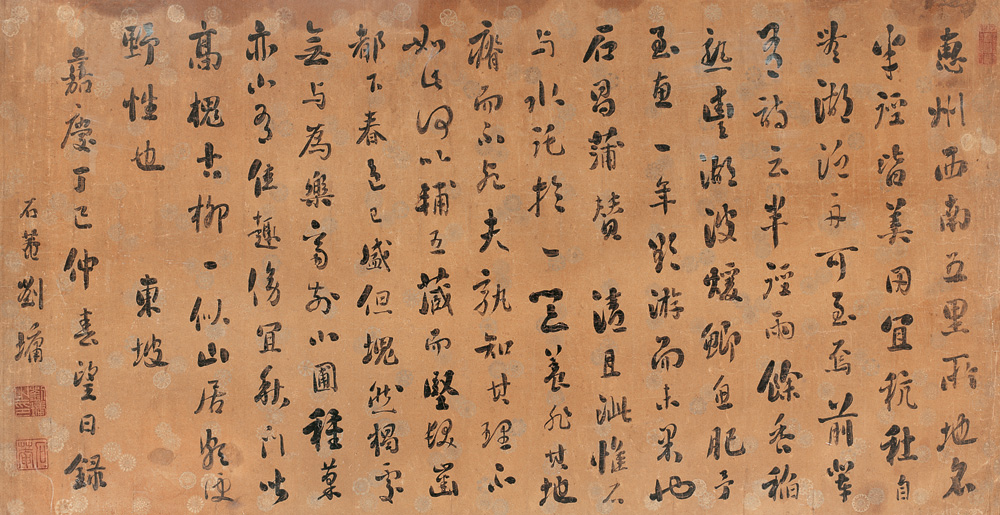 惠州西南五里所地名
半徑皆美田宜秔秫自
豐湖泛舟可至焉前輩
有詩云半徑雨餘香稻
熟豐湖波煖鯽魚肥予
至惠一年欲游而未果也
石菖蒲贊 清且泚惟石
与水託於一器養非其地
瘠而不死夫孰知其理不
如此何以輔五藏而堅髮齒
都下春色已盛但塊然獨處
無与為樂齋前小圃種菜
亦少有佳趣傍宜秋門皆
高槐古柳一似山居頗便
野性也 東坡
嘉慶丁巳仲春望日録
石菴劉墉